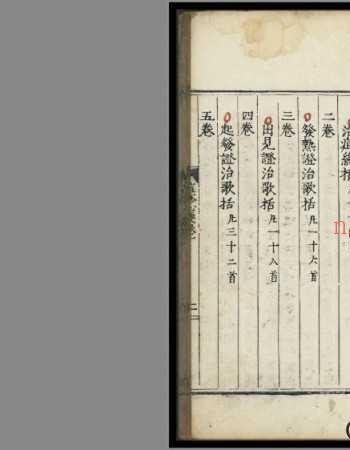 治痘總括
二卷
發熱證治歌括凡一十六首
三卷
出見證治歌括凡一十八首
四卷
起發證治歌括凡三十二首
五卷